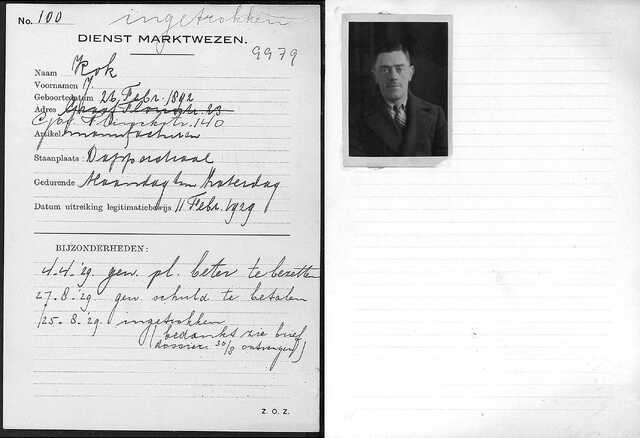 No. 100 ingetrokken
DIENST MARKTWEZEN.
9979
Naam Kok
Voornamen
Geboortedatum 26 Febr. 1892
Adres 23
140
Artikel manufacturen
Staanplaats: Dapperstraat
Gedurende Maandag t/m Zaterdag
Datum uitreiking legitimatiebewijs 11 Febr. 1929
BIJZONDERHEDEN:
4-4-'29. gew. pl. beter te bezetten
27-8-'29. gew. schuld te betalen
25-8-'29. ingetrokken
(bedankt zie brief
dossier 30/8 ontvangen)
Z. O. Z.